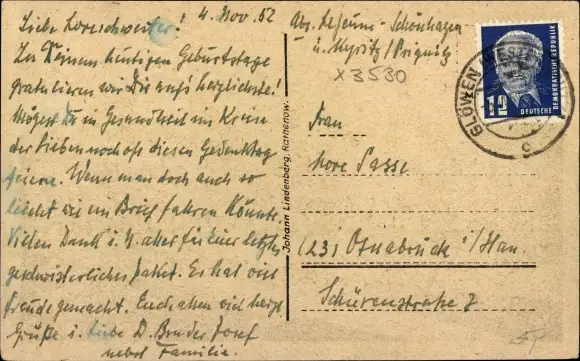 4. Nov. 52
Liebe Loreschwester!
Zu Deinem heutigen Geburtstage
gratulieren wir Dir aufs herzlichste!
Mögest Du in Gesundheit im Kreise
der Lieben noch oft diesen Gedenktag
feiern. Wenn man doch auch so
leicht wie ein Brief fahren könnte.
Vielen Dank i. N. aller für Euer letztes
geschwisterliches Paket. Es hat uns
Freude gemacht. Euch allen viel herzl
Grüße i. Liebe D. Bruder Josef
nebst Familie.
Johann Lindenberg, Rathenow.
Schönhagen
ü. Kyritz/Prignitz
X 3530
Frau
Lore Passe
(23) Osnabrück /Han.
Schürenstraße 7
12
DEUTSCHE
DEMOKRATISCHE REPUBLIK
GLÖWEN
c
5,